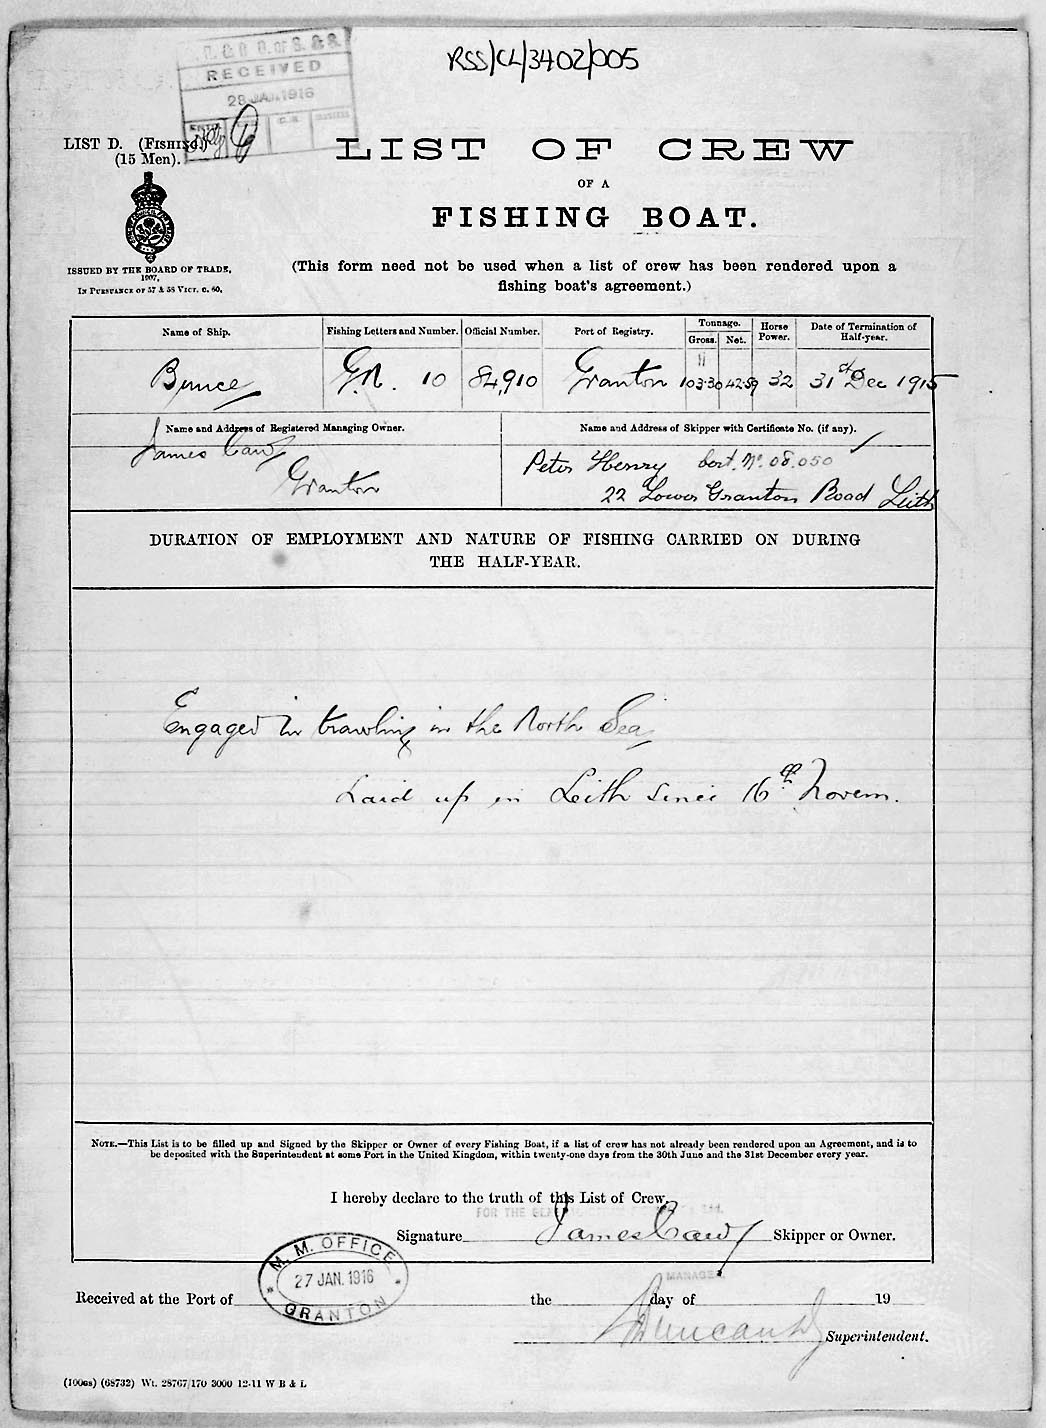 RSS/CL/3402/005
RECEIVED
28 JAN. 1916
LIST D. (FISHING.)
(15 Men).
LIST OF CREW
OF A
FISHING BOAT.
ISSUED BY THE BOARD OF TRADE,
1907,
IN PURSUANCE OF 57 & 58 VICT. C. 60.
(This form need not be used when a list of crew has been rendered upon a
fishing boat's agreement.)
Name of Ship. Fishing Letters and Number. Official Number. Port of Registry. Tonnage. Gross. Net. Horse Power. Date of Termination of Half-year.
G.N. 10 84,910 Granton 103.30 42.59 32 31st Dec 1915
Name and Address of Registered Managing Owner. Name and Address of Skipper with Certificate No. (if any).
James Caw
Granton
Peter Henry Cert. No. 08.050
22 Lower Granton Road Leith
DURATION OF EMPLOYMENT AND NATURE OF FISHING CARRIED ON DURING
THE HALF-YEAR.
Engaged in trawling in the North Sea
Laid up in Leith since 16th Novem.
NOTE.—This List is to be filled up and Signed by the Skipper or Owner of every Fishing Boat, if a list of crew has not already been rendered upon an Agreement, and is to
be deposited with the Superintendent at some Port in the United Kingdom, within twenty-one days from the 30th June and the 31st December every year.
I hereby declare to the truth of this List of Crew.
FOR THE Ltd.
Signature James Caw Skipper or Owner.
MANAGER
M. M. OFFICE
27 JAN. 1916
GRANTON
Received at the Port of the day of 19
Duncan Superintendent.
(100GS) (68732) Wt. 28767/170 3000 12-11 W B & L